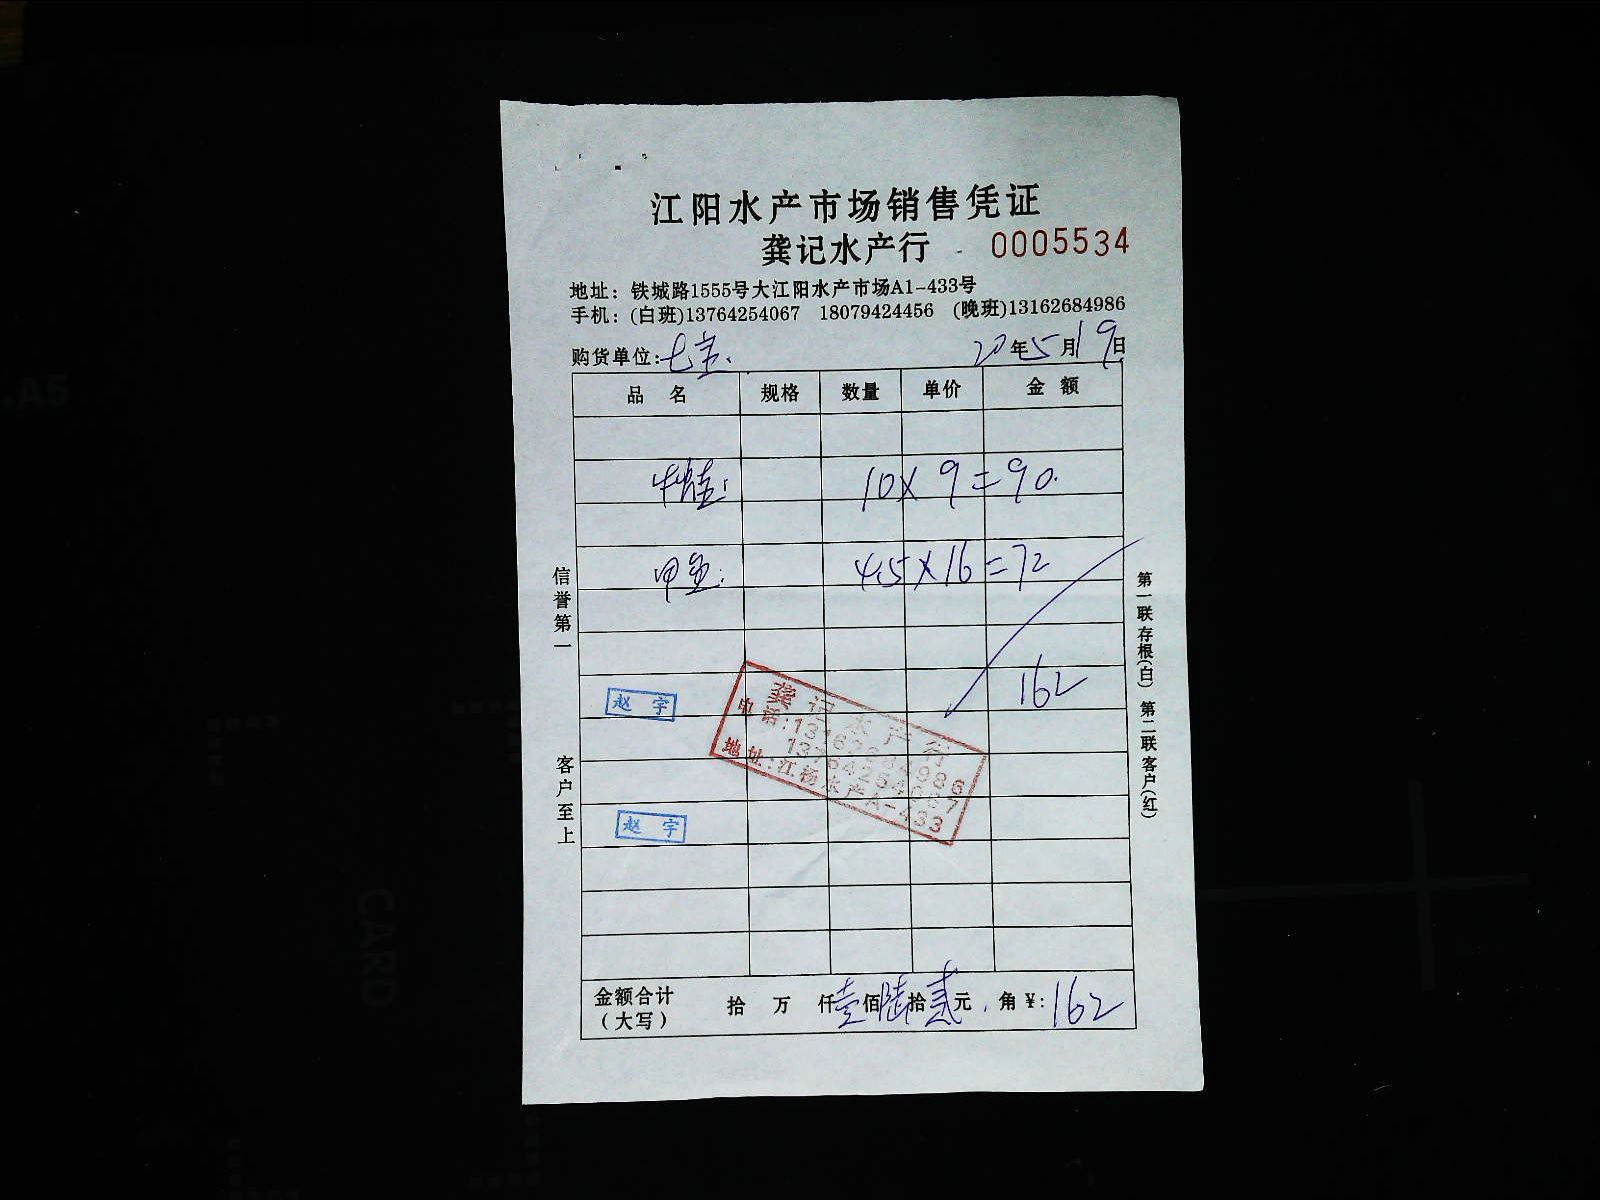 江阳水产市场销售凭证
龚记水产行 0005534
地址：铁城路1555号大江阳水产市场A1-433号
手机：(白班)13764254067 18079424456 (晚班)13162684986
购货单位：七宝 20年5月19日
品 名 规格 数量 单价 金 额
牛蛙 10×9=90
甲鱼 4.5×16=72
162
信誉第一
客户至上
第一联存根(白) 第二联客户(红)
赵 宇
龚记水产行
电话:13162684986
13764254067
地址:江杨水产A-433
赵 宇
金额合计（大写） 拾 万 仟壹佰陆拾贰元 角 ¥:162